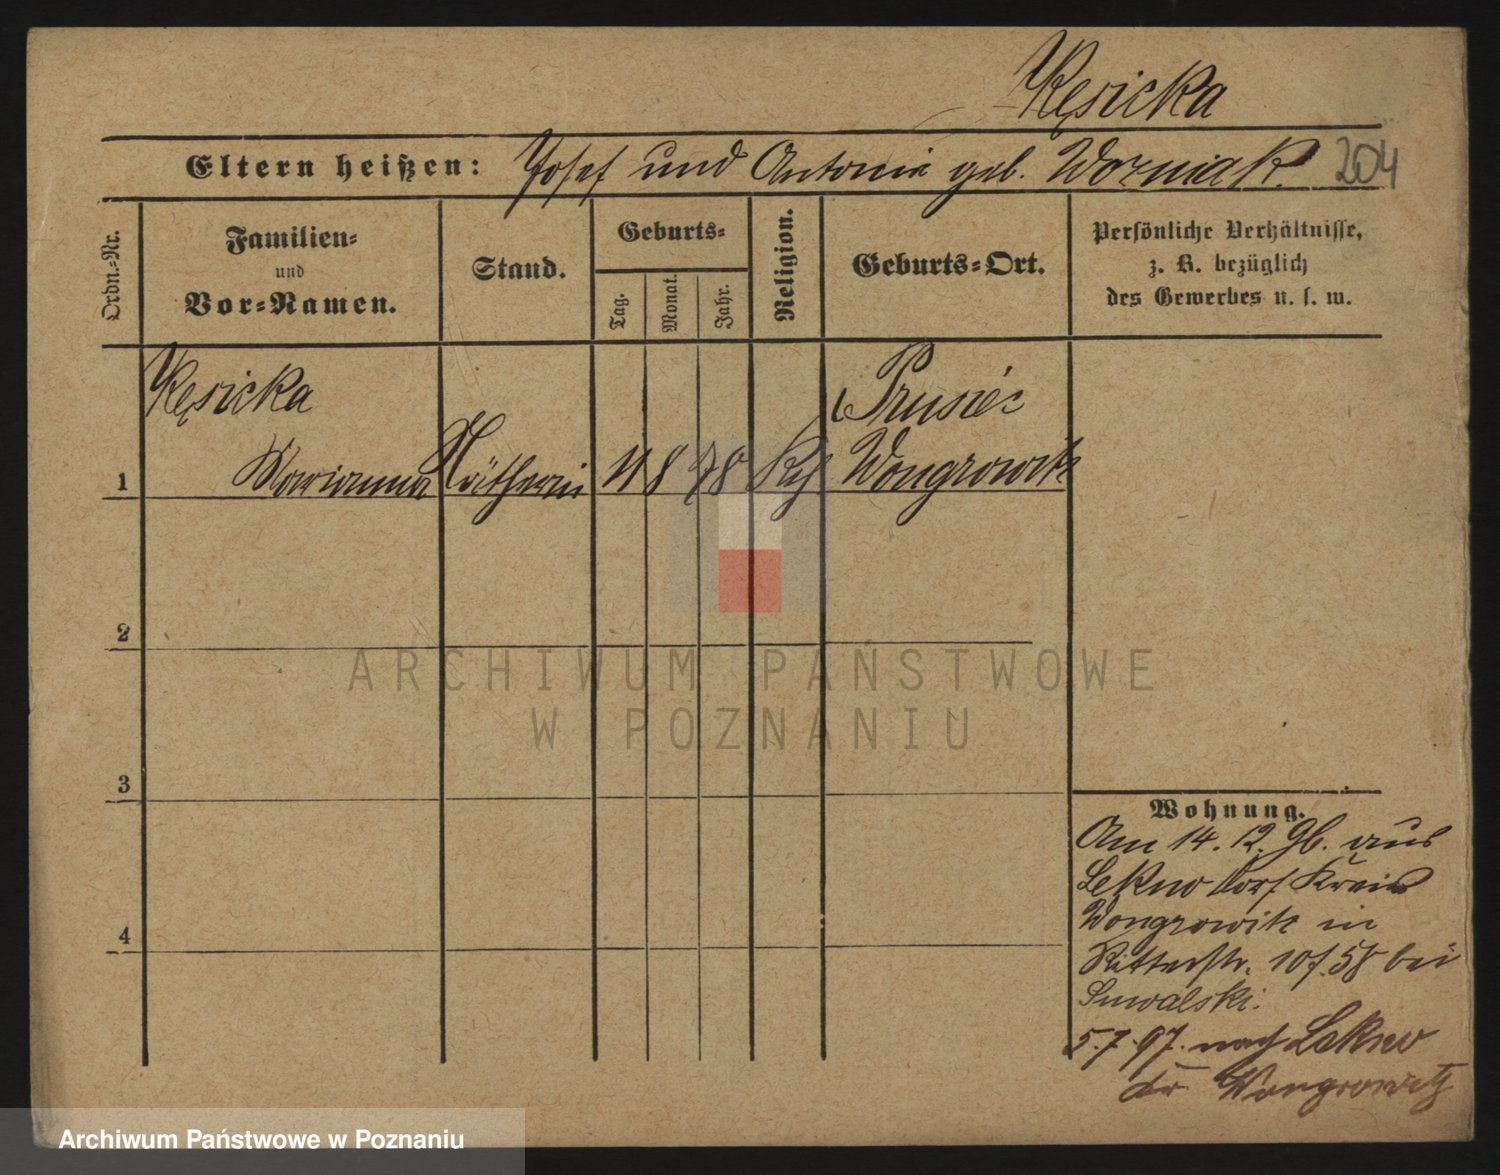 Kęsicka
Eltern heißen: Josef und Antonie geb. Wozniak. 204
Ordn.-Nr.
Familien-
und
Vor-Namen.
Stand.
Geburts-
Tag.
Monat.
Jahr.
Religion.
Geburts-Ort.
Persönliche Verhältnisse,
z. B. bezüglich
des Gewerbes u. s. w.
Kęsicka
Prusiec
1 Marianna Nätherin 11 8 78 Kth Wongrowitz
2
3
4
Wohnung.
Am 14. 12. 96. aus
Lekno Dorf Kreis
Wongrowitz in
Ritterstr. 10 f. 58 bei
Suwalski.
5. 7. 97. nach Lekno
Kr. Wongrowitz
ARCHIWUM PAŃSTWOWE
W POZNANIU
Archiwum Państwowe w Poznaniu